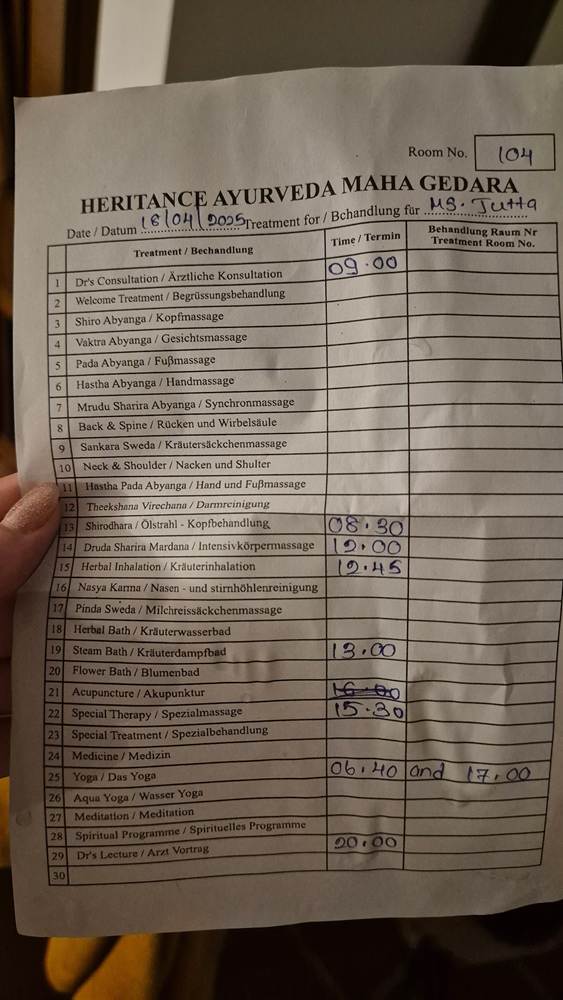 Room No. 104
HERITANCE AYURVEDA MAHA GEDARA
Date / Datum 18/04/2025 Treatment for / Bchandlung für Ms. Jutta
Treatment / Bechandlung Time / Termin Behandlung Raum Nr Treatment Room No.
1 Dr's Consultation / Ärztliche Konsultation 09.00
2 Welcome Treatment / Begrüssungsbehandlung
3 Shiro Abyanga / Kopfmassage
4 Vaktra Abyanga / Gesichtsmassage
5 Pada Abyanga / Fußmassage
6 Hastha Abyanga / Handmassage
7 Mrudu Sharira Abyanga / Synchronmassage
8 Back & Spine / Rücken und Wirbelsäule
9 Sankara Sweda / Kräutersäckchenmassage
10 Neck & Shoulder / Nacken und Shulter
11 Hastha Pada Abyanga / Hand und Fußmassage
12 Theekshana Virechana / Darmreinigung
13 Shirodhara / Ölstrahl - Kopfbehandlung 08.30
14 Druda Sharira Mardana / Intensivkörpermassage 12.00
15 Herbal Inhalation / Kräuterinhalation 12.45
16 Nasya Karma / Nasen - und stirnhöhlenreinigung
17 Pinda Sweda / Milchreissäckchenmassage
18 Herbal Bath / Kräuterwasserbad
19 Steam Bath / Kräuterdampfbad 13.00
20 Flower Bath / Blumenbad
21 Acupuncture / Akupunktur 16.00
22 Special Therapy / Spezialmassage 15.30
23 Special Treatment / Spezialbehandlung
24 Medicine / Medizin
25 Yoga / Das Yoga 06.40 and 17.00
26 Aqua Yoga / Wasser Yoga
27 Meditation / Meditation
28 Spiritual Programme / Spirituelles Programme
29 Dr's Lecture / Arzt Vortrag 20.00
30